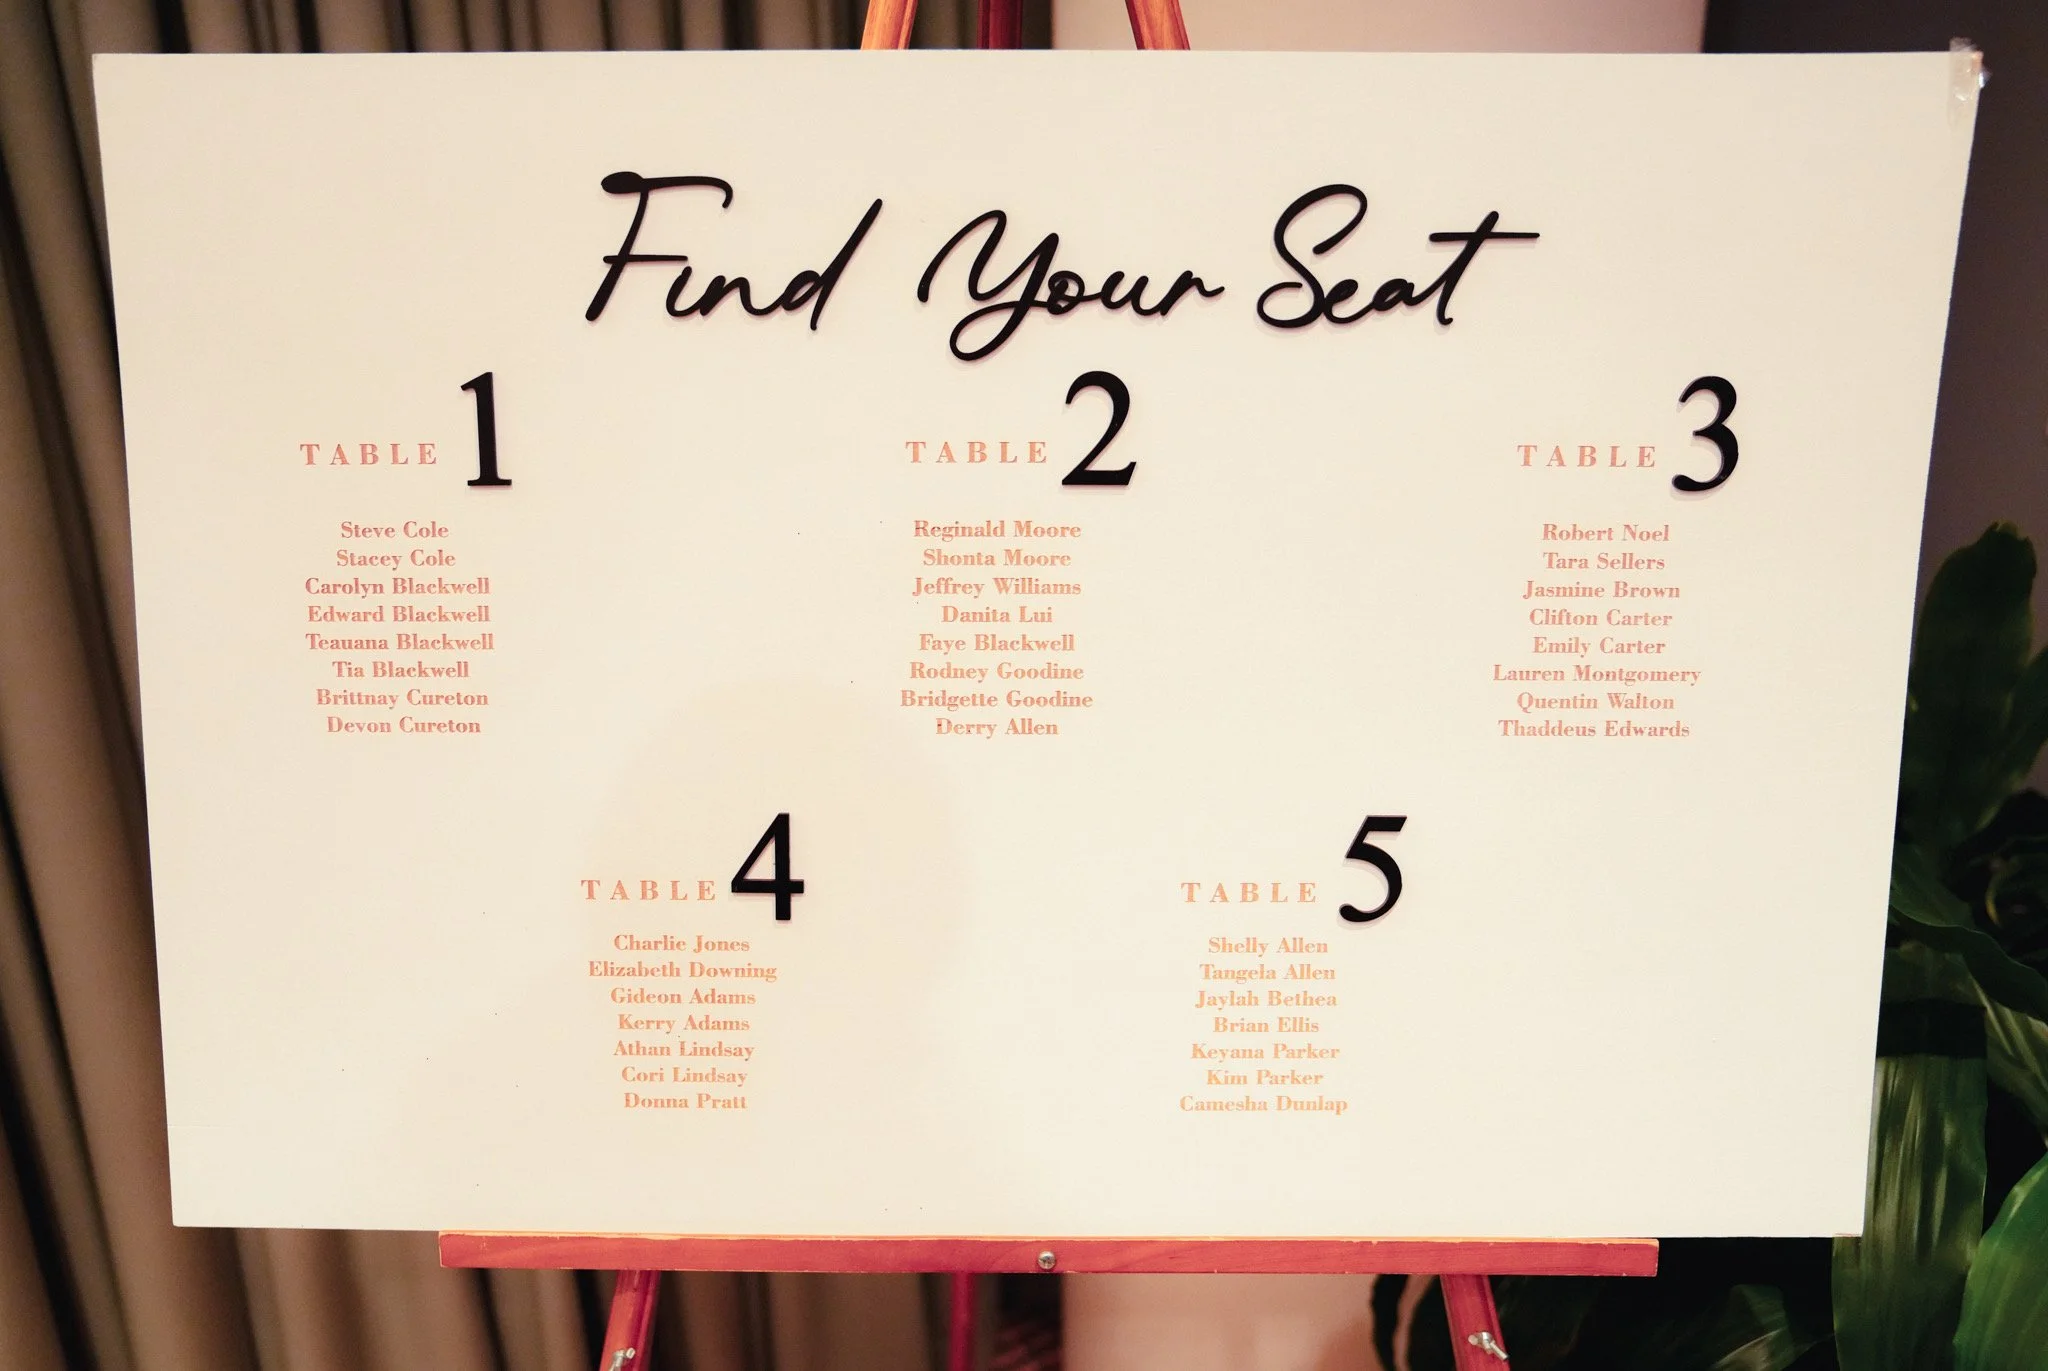 Find Your Seat
TABLE 1
Steve Cole
Stacey Cole
Carolyn Blackwell
Edward Blackwell
Teauana Blackwell
Tia Blackwell
Brittnay Cureton
Devon Cureton
TABLE 2
Reginald Moore
Shonta Moore
Jeffrey Williams
Danita Lui
Faye Blackwell
Rodney Goodine
Bridgette Goodine
Derry Allen
TABLE 3
Robert Noel
Tara Sellers
Jasmine Brown
Clifton Carter
Emily Carter
Lauren Montgomery
Quentin Walton
Thaddeus Edwards
TABLE 4
Charlie Jones
Elizabeth Downing
Gideon Adams
Kerry Adams
Athan Lindsay
Cori Lindsay
Donna Pratt
TABLE 5
Shelly Allen
Tangela Allen
Jaylah Bethea
Brian Ellis
Keyana Parker
Kim Parker
Camesha Dunlap